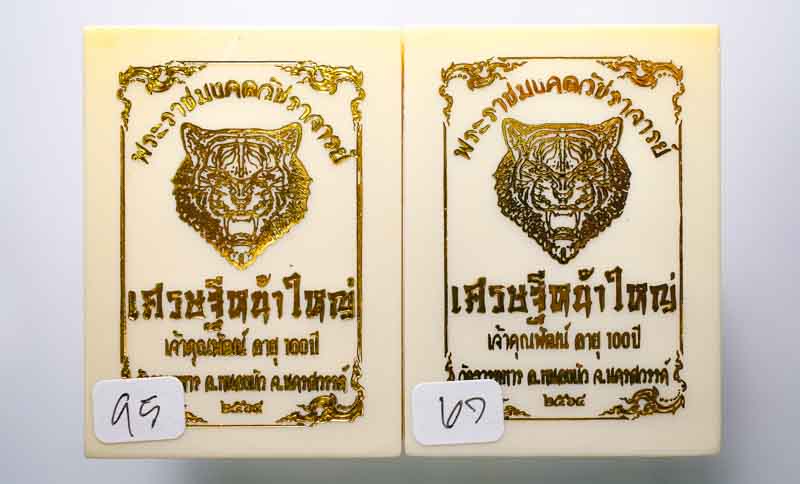 พระราชมงคลวัชราจารย์
เศรษฐีหน้าใหญ่
เจ้าคุณพัฒน์ อายุ 100 ปี
อ.หนองบัว จ.นครสวรรค์
๒๕๖๔
พระราชมงคลวัชราจารย์
เศรษฐีหน้าใหญ่
เจ้าคุณพัฒน์ อายุ 100 ปี
วัดธารทหาร อ.หนองบัว จ.นครสวรรค์
๒๕๖๔